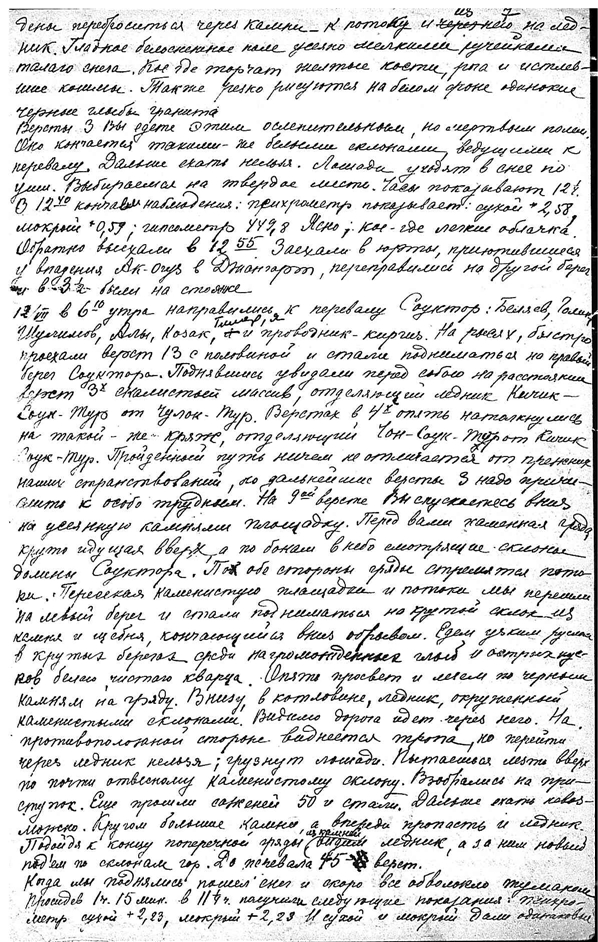 дены переброситься через камни - к потоку и из него на лед-
ник. Гладкое белоснежное поле усеяно мелкими ручейками
талого снега. Кое где торчат желтые кости, рога и истлев-
шие кошмы. Также резко рисуются на белом фоне одинокие
черные глыбы гранита
Версты 3 Вы едете этим ослепительным, но мертвым полем.
Оно кончается такими-же белыми склонами, ведущими к
перевалу. Дальше ехать нельзя. Лошади уходят в снег по
уши. Выбираемся на твердое место. Часы показывают 12 ч.
В 12 40 кончаем наблюдения: психрометр показывает: сухой +2,58,
мокрый +0,59; гипсометр 449,8 Ясно; кое-где легкие облачка.
Обратно выехали в 12 55 Заехали в юрты, приютившиеся
у впадения Ак-огуз в Джанарт, переправились на другой берег
и в 3½ были на стоянке
12/VII в 6 10 утра направились к перевалу Соуктор: Беляев,
Шулимов, Алы, Козак, и проводник-киргиз. На рысях, быстро
проехали верст 13 с половиной и стали подниматься на правый
берег Соуктора. Поднявшись увидали перед собою на расстоянии
верст 3х скалистый массив, отделяющий ледник Кичик-
Соук-Тур от Чулок-Тур. Верстах в 4х опять натолкнулись
на такой-же кряж, отделяющий Чон-Соук-Тур от Кичик
Соук-Тур. Пройденой путь ничем не отличается от прежних
наших странствований, но дальнейшие версты 3 надо причи-
слить к особо трудным. На 9ой версте Вы спускаетесь вниз
на усеянную камнями площадку. Перед вами каменная гряда
круто идущая вверх а по бокам в небо смотрящие склоны
долины Соуктора. По обе стороны гряды стремятся пото-
ки. Пересекая каменистую площадки и потоки мы перешли
на левый берег и стали подниматься на крутой склон из
камня и щебня, кончающийся вниз обрывом. Едем узким руслом
в крутых берегах среди нагроможденных глыб и острых кус-
ков белого чистого кварца. Опять просвет и лезем по черным
камням на гряду. Внизу, в котловине, ледник, окруженный
каменистыми склонами. Видимо дорога идет через него. На
противоположной стороне виднеется тропа, но перейти
через ледник нельзя; грузнут лошади. Пытаемся лезть вверх
по почти отвесному каменистому склону. Взобрались на при-
ступок. Еще прошли сажений 50 и стали. Дальше ехать невоз-
можно. Кругом большие камни, а впереди пропасть и ледник.
Подойдя к концу поперечной гряды из камней видим ледник, а за ним новый
под'ем по склонам гор. До перевала верст.
Когда мы поднялись пошел снег и скоро все обволокло туманом
Просидев 1 ч. 15 мин. в 11¼ ч. получили следующие показания: психро-
метр сухой +2,23, мокрый +2,23 И сухой и мокрый дали одинаковые